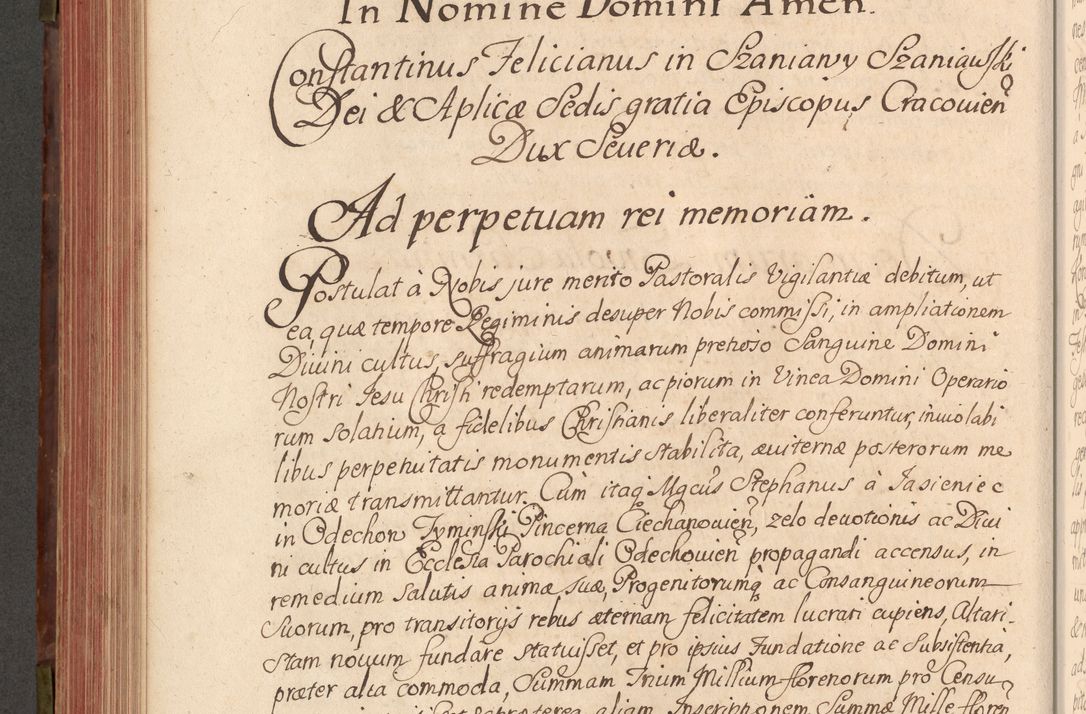 In Nomine Domini Amen.
Constantinus Felicianus in Szaniawy Szaniawski
Dei & Aplicæ Sedis gratia Episcopus Cracovien
Dux Severiæ.
Ad perpetuam rei memoriam.
Postulat à Nobis jure merito Pastoralis Vigilantiæ debitum, ut
ea, quæ tempore Regiminis desuper Nobis commissi, in ampliationem
Divini cultus, suffragium animarum pretioso Sanguine Domini
Nostri Jesu Christi redemptarum, ac piorum in Vinea Domini Operario
rum solatium, a fidelibus Christianis liberaliter conferuntur, inviolabi
libus perpetuitatis monumentis stabilita, æviternæ posterorum me
moriæ transmittantur. Cùm itaq Mgcus Stephanus à Jasieniec
in Odechow Tyminski Pincerna Ciechanovien, zelo devotionis ac Divi
ni cultus in Ecclesia Parochiali Odechovien propagandi accensus, in
remedium salutis animæ suæ, Progenitorumq ac Consanguineorum
Suorum, pro transitorijs rebus æternam felicitatem lucrari cupiens, Altari-
stam novum fundare statuisset, et pro ipsius Fundatione ac Subsistentia,
præter alia commoda, Summam Trium Millium florenorum pro Censu
præterea aliam Inscriptionem Summæ Mille floren